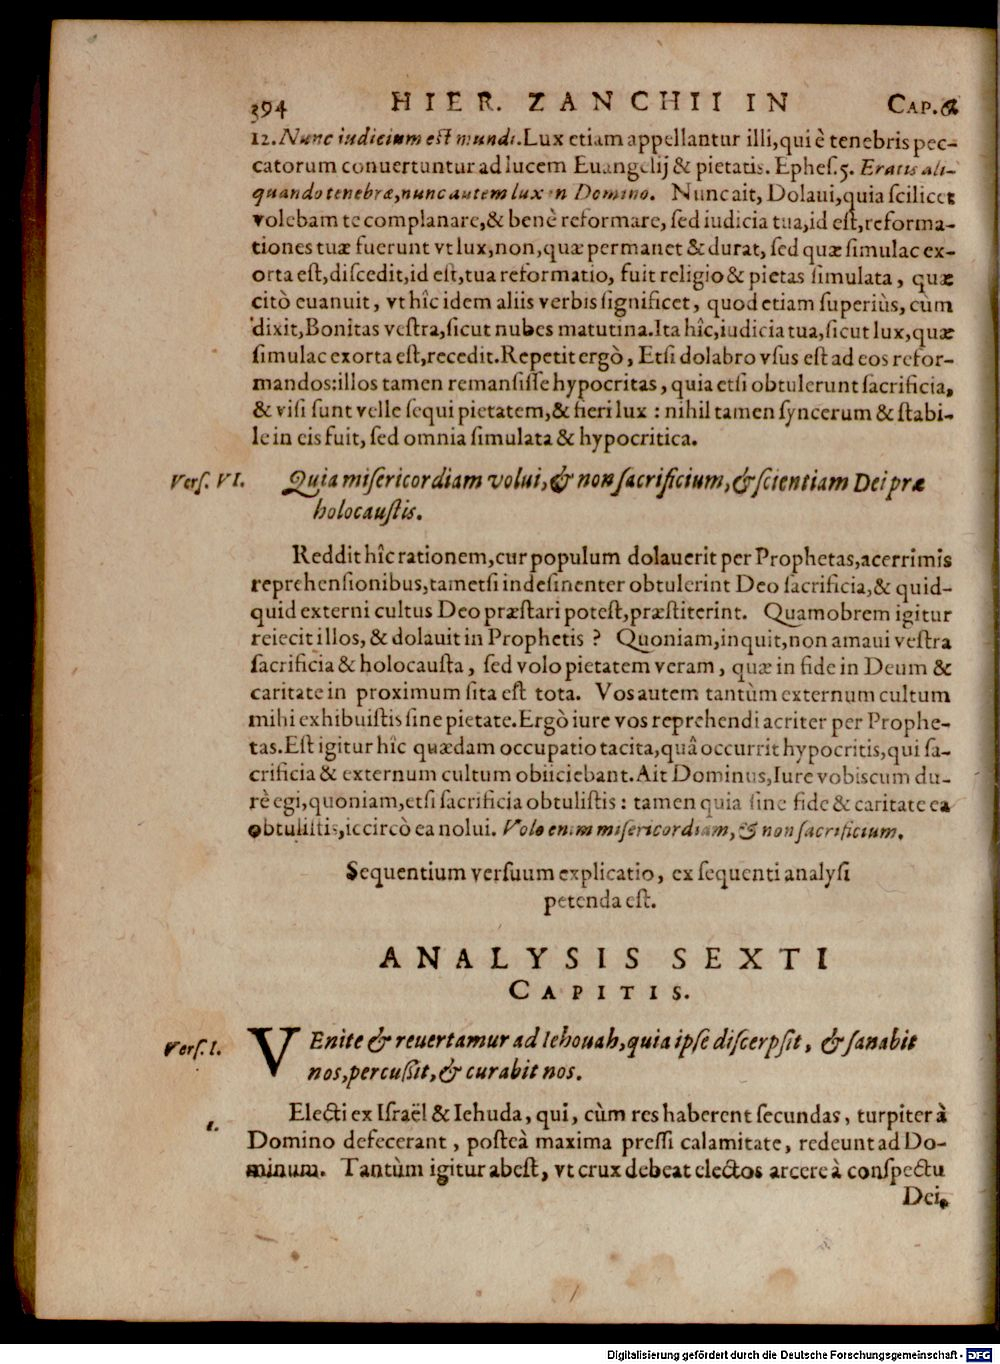 394 HIER. ZANCHII IN CAP. 6
12. Nunc iudicium est mundi. Lux etiam appellantur illi, qui è tenebris pec-
catorum conuertuntur ad lucem Euangelij & pietatis. Ephes. 5. Eratis ali-
quando tenebræ, nunc autem lux in Domino. Nunc ait, Dolaui, quia scilicet
volebam te complanare, & benè reformare, sed iudicia tua, id est, reforma-
tiones tuæ fuerunt vt lux, non, quæ permanet & durat, sed quæ simulac ex-
orta est, discedit, id est, tua reformatio, fuit religio & pietas simulata, quæ
citò euanuit, vt hîc idem aliis verbis significet, quod etiam superiùs, cùm
dixit, Bonitas vestra, sicut nubes matutina. Ita hîc, iudicia tua, sicut lux, quæ
simulac exorta est, recedit. Repetit ergò, Etsi dolabro vsus est ad eos refor-
mandos: illos tamen remansisse hypocritas, quia etsi obtulerunt sacrificia,
& visi sunt velle sequi pietatem, & fieri lux: nihil tamen syncerum & stabi-
le in eis fuit, sed omnia simulata & hypocritica.
Vers. VI. Quia misericordiam volui, & non sacrificium, & scientiam Dei præ
holocaustis.
Reddit hîc rationem, cur populum dolauerit per Prophetas, acerrimis
reprehensionibus, tametsi indesinenter obtulerint Deo sacrificia, & quid-
quid externi cultus Deo præstari potest, præstiterint. Quamobrem igitur
reiecit illos, & dolauit in Prophetis? Quoniam, inquit, non amaui vestra
sacrificia & holocausta, sed volo pietatem veram, quæ in fide in Deum &
caritate in proximum sita est tota. Vos autem tantùm externum cultum
mihi exhibuistis sine pietate. Ergò iure vos reprehendi acriter per Prophe-
tas. Est igitur hîc quædam occupatio tacita, quâ occurrit hypocritis, qui sa-
crificia & externum cultum obiiciebant. Ait Dominus, Iure vobiscum du-
rè egi, quoniam, etsi sacrificia obtulistis: tamen quia sine fide & caritate ea
obtulistis, iccircò ea nolui. Volo enim misericordiam, & non sacrificium.
Sequentium versuum explicatio, ex sequenti analysi
petenda est.
ANALYSIS SEXTI
CAPITIS.
Vers. I. VEnite & reuertamur ad Iehouah, quia ipse discerpsit, & sanabit
nos, percussit, & curabit nos.
1. Electi ex Israël & Iehuda, qui, cùm res haberent secundas, turpiter à
Domino defecerant, posteà maxima pressi calamitate, redeunt ad Do-
minum. Tantùm igitur abest, vt crux debeat electos arcere à conspectu
Dei,
Digitalisierung gefördert durch die Deutsche Forschungsgemeinschaft - DFG